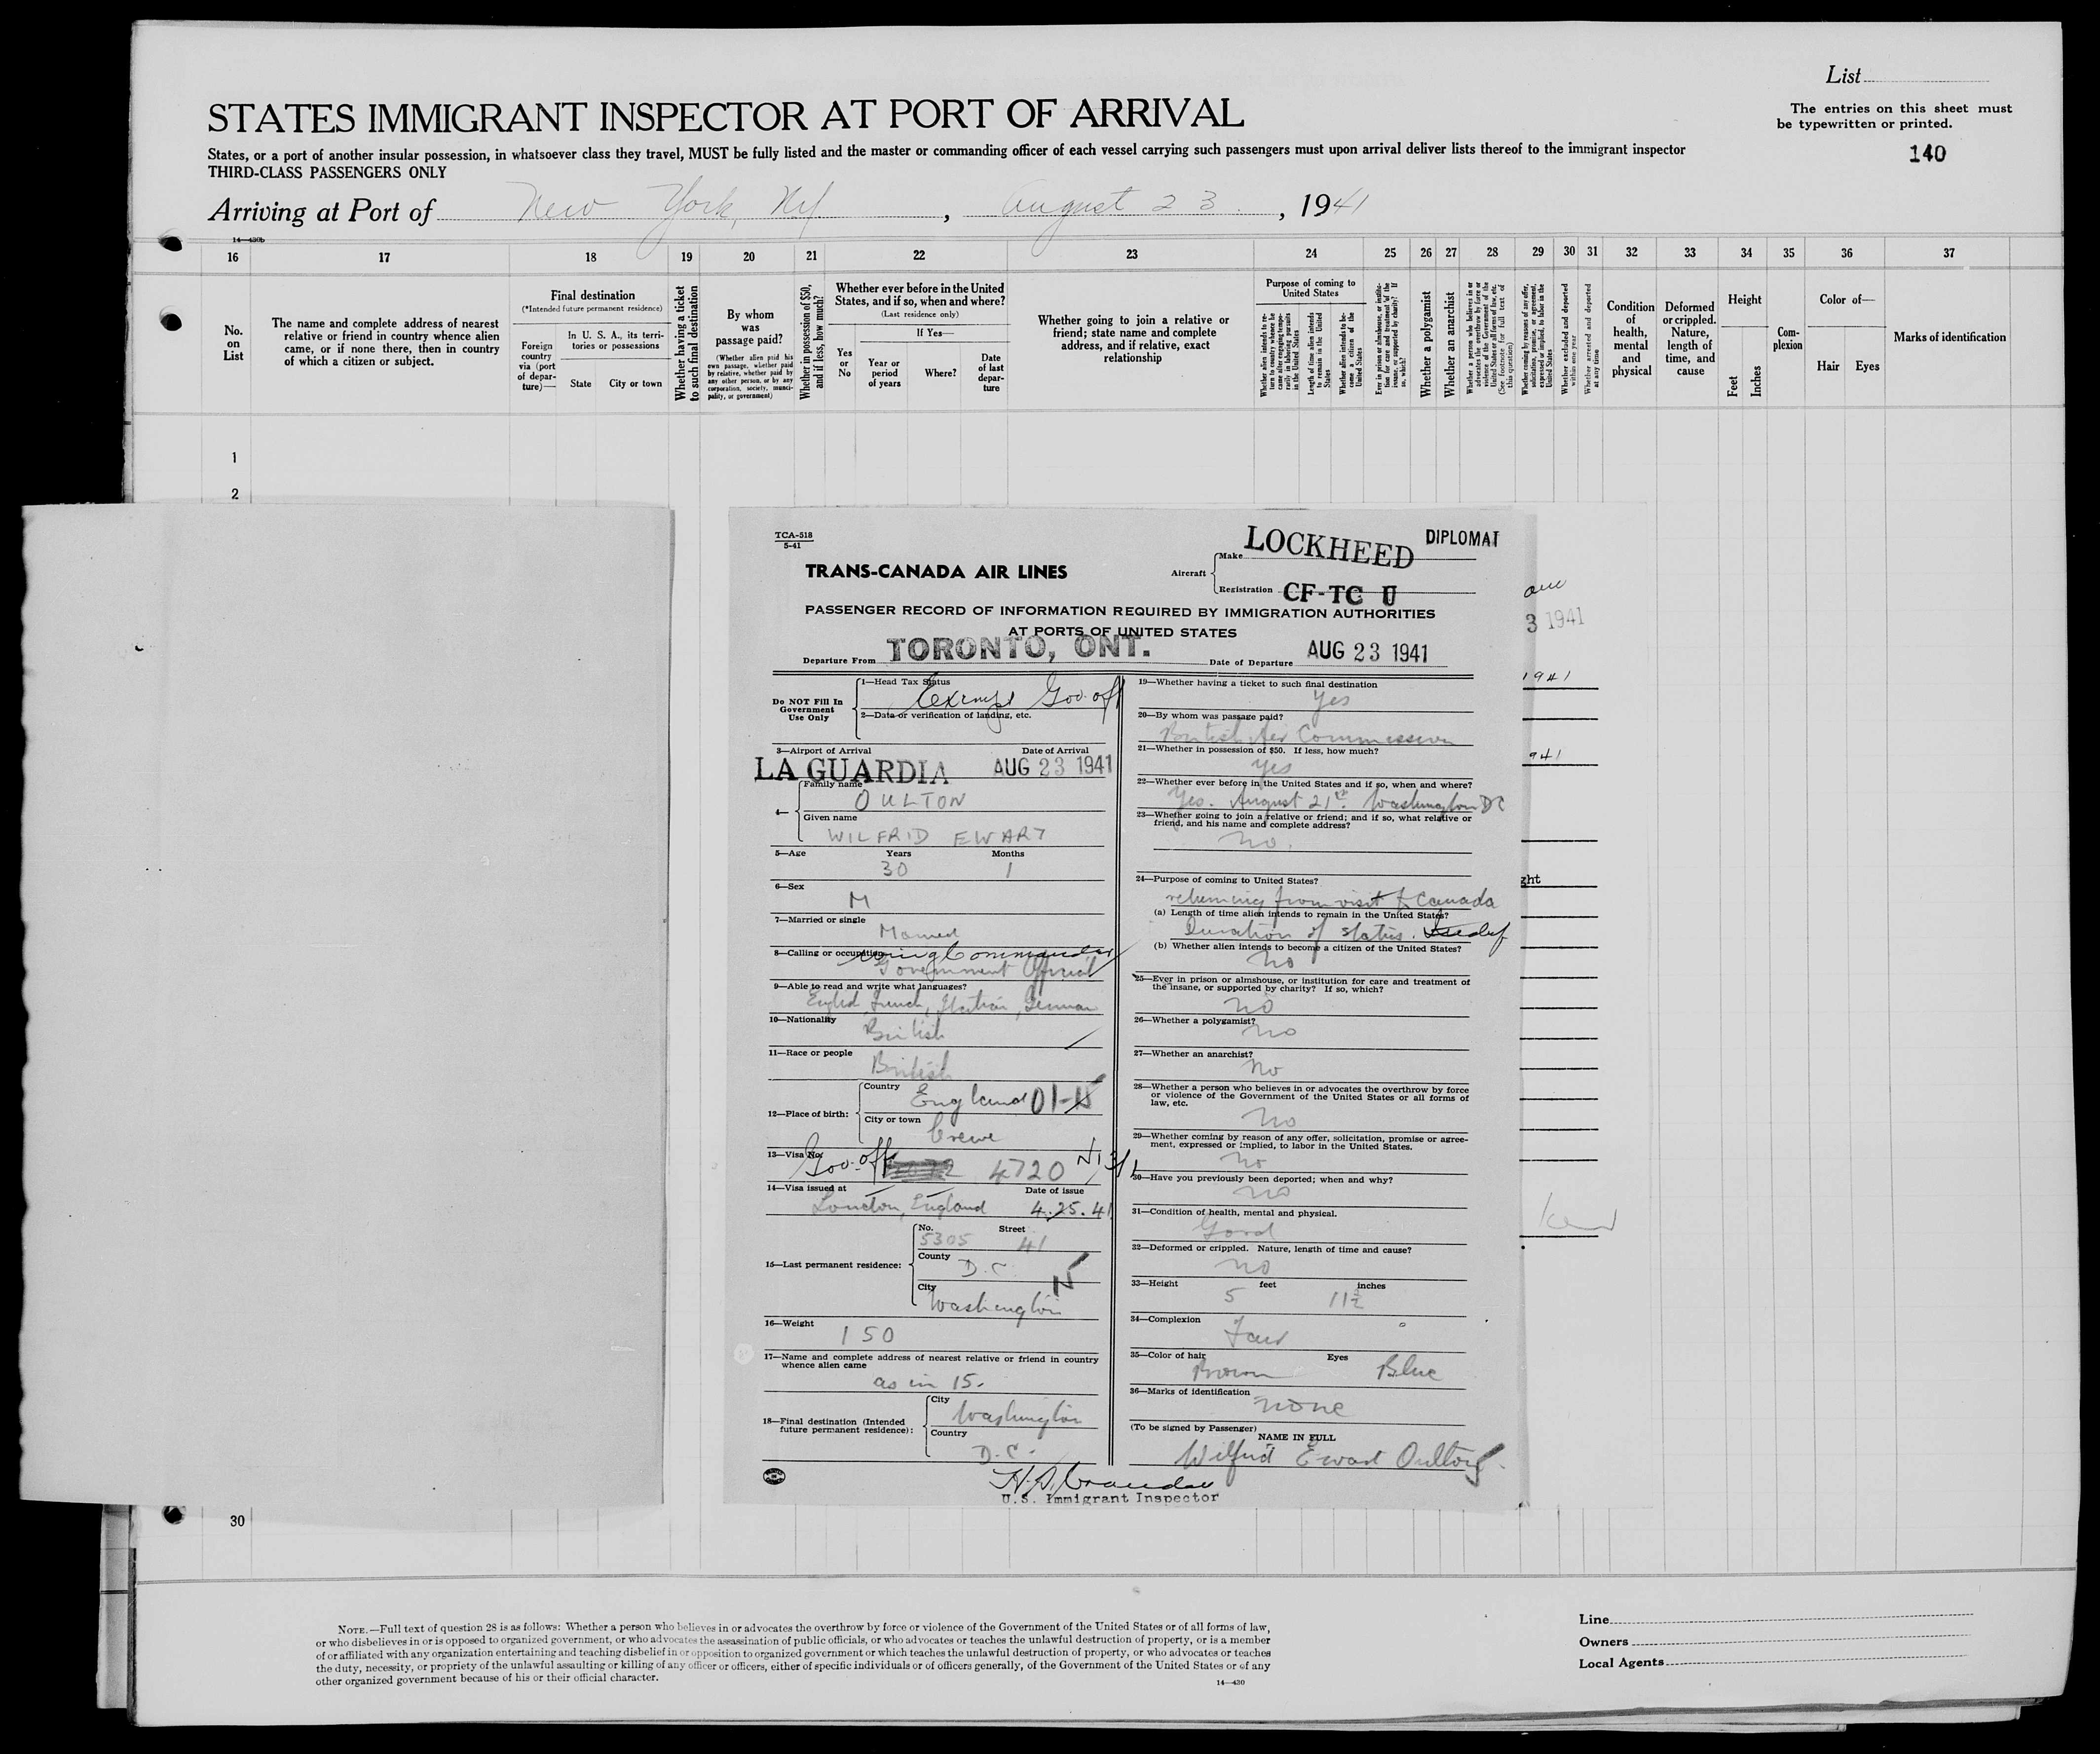 List
STATES IMMIGRANT INSPECTOR AT PORT OF ARRIVAL
The entries on this sheet must
be typewritten or printed.
140
States, or a port of another insular possession, in whatsoever class they travel, MUST be fully listed and the master or commanding officer of each vessel carrying such passengers must upon arrival deliver lists thereof to the immigrant inspector
THIRD-CLASS PASSENGERS ONLY
Arriving at Port of New York, NY, August 23, 1941
14—430b
16 17 18 19 20 21 22 23 24 25 26 27 28 29 30 31 32 33 34 35 36 37
No. on List
The name and complete address of nearest relative or friend in country whence alien came, or if none there, then in country of which a citizen or subject.
Final destination
(*Intended future permanent residence)
Foreign country via (port of departure)—
In U. S. A., its territories or possessions
State
City or town
Whether having a ticket to such final destination
By whom was passage paid?
(Whether alien paid his own passage, whether paid by relative, whether paid by any other person, or by any corporation, society, municipality, or government)
Whether in possession of $50, and if less, how much?
Whether ever before in the United States, and if so, when and where?
(Last residence only)
Yes or No
If Yes—
Year or period of years
Where?
Date of last departure
Whether going to join a relative or friend; state name and complete address, and if relative, exact relationship
Purpose of coming to United States
Whether alien intends to return to country whence he came after engaging temporarily in laboring pursuits in the United States
Length of time alien intends to remain in the United States
Whether alien intends to become a citizen of the United States
Ever in prison or almshouse, or institution for care and treatment of the insane, or supported by charity? If so, which?
Whether a polygamist
Whether an anarchist
Whether a person who believes in or advocates the overthrow by force or violence of the Government of the United States or all forms of law, etc. (See footnote for full text of this question)
Whether coming by reasons of any offer, solicitation, promise, or agreement, expressed or implied, to labor in the United States
Whether excluded and deported within one year
Whether arrested and deported at any time
Condition of health, mental and physical
Deformed or crippled. Nature, length of time, and cause
Height
Feet
Inches
Complexion
Color of—
Hair
Eyes
Marks of identification
1
2
TCA-518
5-41
TRANS-CANADA AIR LINES
Aircraft
Make LOCKHEED
DIPLOMAT
Registration CF-TC U
PASSENGER RECORD OF INFORMATION REQUIRED BY IMMIGRATION AUTHORITIES
AT PORTS OF UNITED STATES
Departure From TORONTO, ONT. Date of Departure AUG 23 1941
Do NOT Fill In Government Use Only
1—Head Tax Status
Exempt Gov. off
2—Data or verification of landing, etc.
3—Airport of Arrival Date of Arrival
LA GUARDIA AUG 23 1941
4—
Family name
OULTON
Given name
WILFRID EWART
5—Age Years Months
30 1
6—Sex
M
7—Married or single
Married
8—Calling or occupation
Wing Commander
Government Official
9—Able to read and write what languages?
English, French, Italian, German
10—Nationality
British
11—Race or people
British
12—Place of birth:
Country
England 01-15
City or town
Crewe
13—Visa No.
Gov. off 4720
14—Visa issued at Date of issue
London, England 4.25.41
15—Last permanent residence:
No. Street
5305 41
County
D.C.
City
Washington
16—Weight
150
17—Name and complete address of nearest relative or friend in country
whence alien came
as in 15.
18—Final destination (Intended
future permanent residence):
City
Washington
Country
D.C.
19—Whether having a ticket to such final destination
Yes
20—By whom was passage paid?
British Air Commission
21—Whether in possession of $50. If less, how much?
yes
22—Whether ever before in the United States and if so, when and where?
Yes. August 21st. Washington DC
23—Whether going to join a relative or friend; and if so, what relative or
friend, and his name and complete address?
No.
24—Purpose of coming to United States?
returning from visit to Canada
(a) Length of time alien intends to remain in the United States?
Duration of status.
(b) Whether alien intends to become a citizen of the United States?
No
25—Ever in prison or almshouse, or institution for care and treatment of
the insane, or supported by charity? If so, which?
No
26—Whether a polygamist?
No
27—Whether an anarchist?
No
28—Whether a person who believes in or advocates the overthrow by force
or violence of the Government of the United States or all forms of
law, etc.
No
29—Whether coming by reason of any offer, solicitation, promise or agree-
ment, expressed or implied, to labor in the United States.
No
30—Have you previously been deported; when and why?
No
31—Condition of health, mental and physical.
Good
32—Deformed or crippled. Nature, length of time and cause?
No
33—Height feet inches
5 11½
34—Complexion
Fair
35—Color of hair Eyes
Brown Blue
36—Marks of identification
none
(To be signed by Passenger)
NAME IN FULL
Wilfrid Ewart Oulton
U.S. Immigrant Inspector
3 1941
1941
941
ght
30
NOTE.—Full text of question 28 is as follows: Whether a person who believes in or advocates the overthrow by force or violence of the Government of the United States or of all forms of law,
or who disbelieves in or is opposed to organized government, or who advocates the assassination of public officials, or who advocates or teaches the unlawful destruction of property, or is a member
of or affiliated with any organization entertaining and teaching disbelief in or opposition to organized government or which teaches the unlawful destruction of property, or who advocates or teaches
the duty, necessity, or propriety of the unlawful assaulting or killing of any officer or officers, either of specific individuals or of officers generally, of the Government of the United States or of any
other organized government because of his or their official character.
14—430
Line
Owners
Local Agents